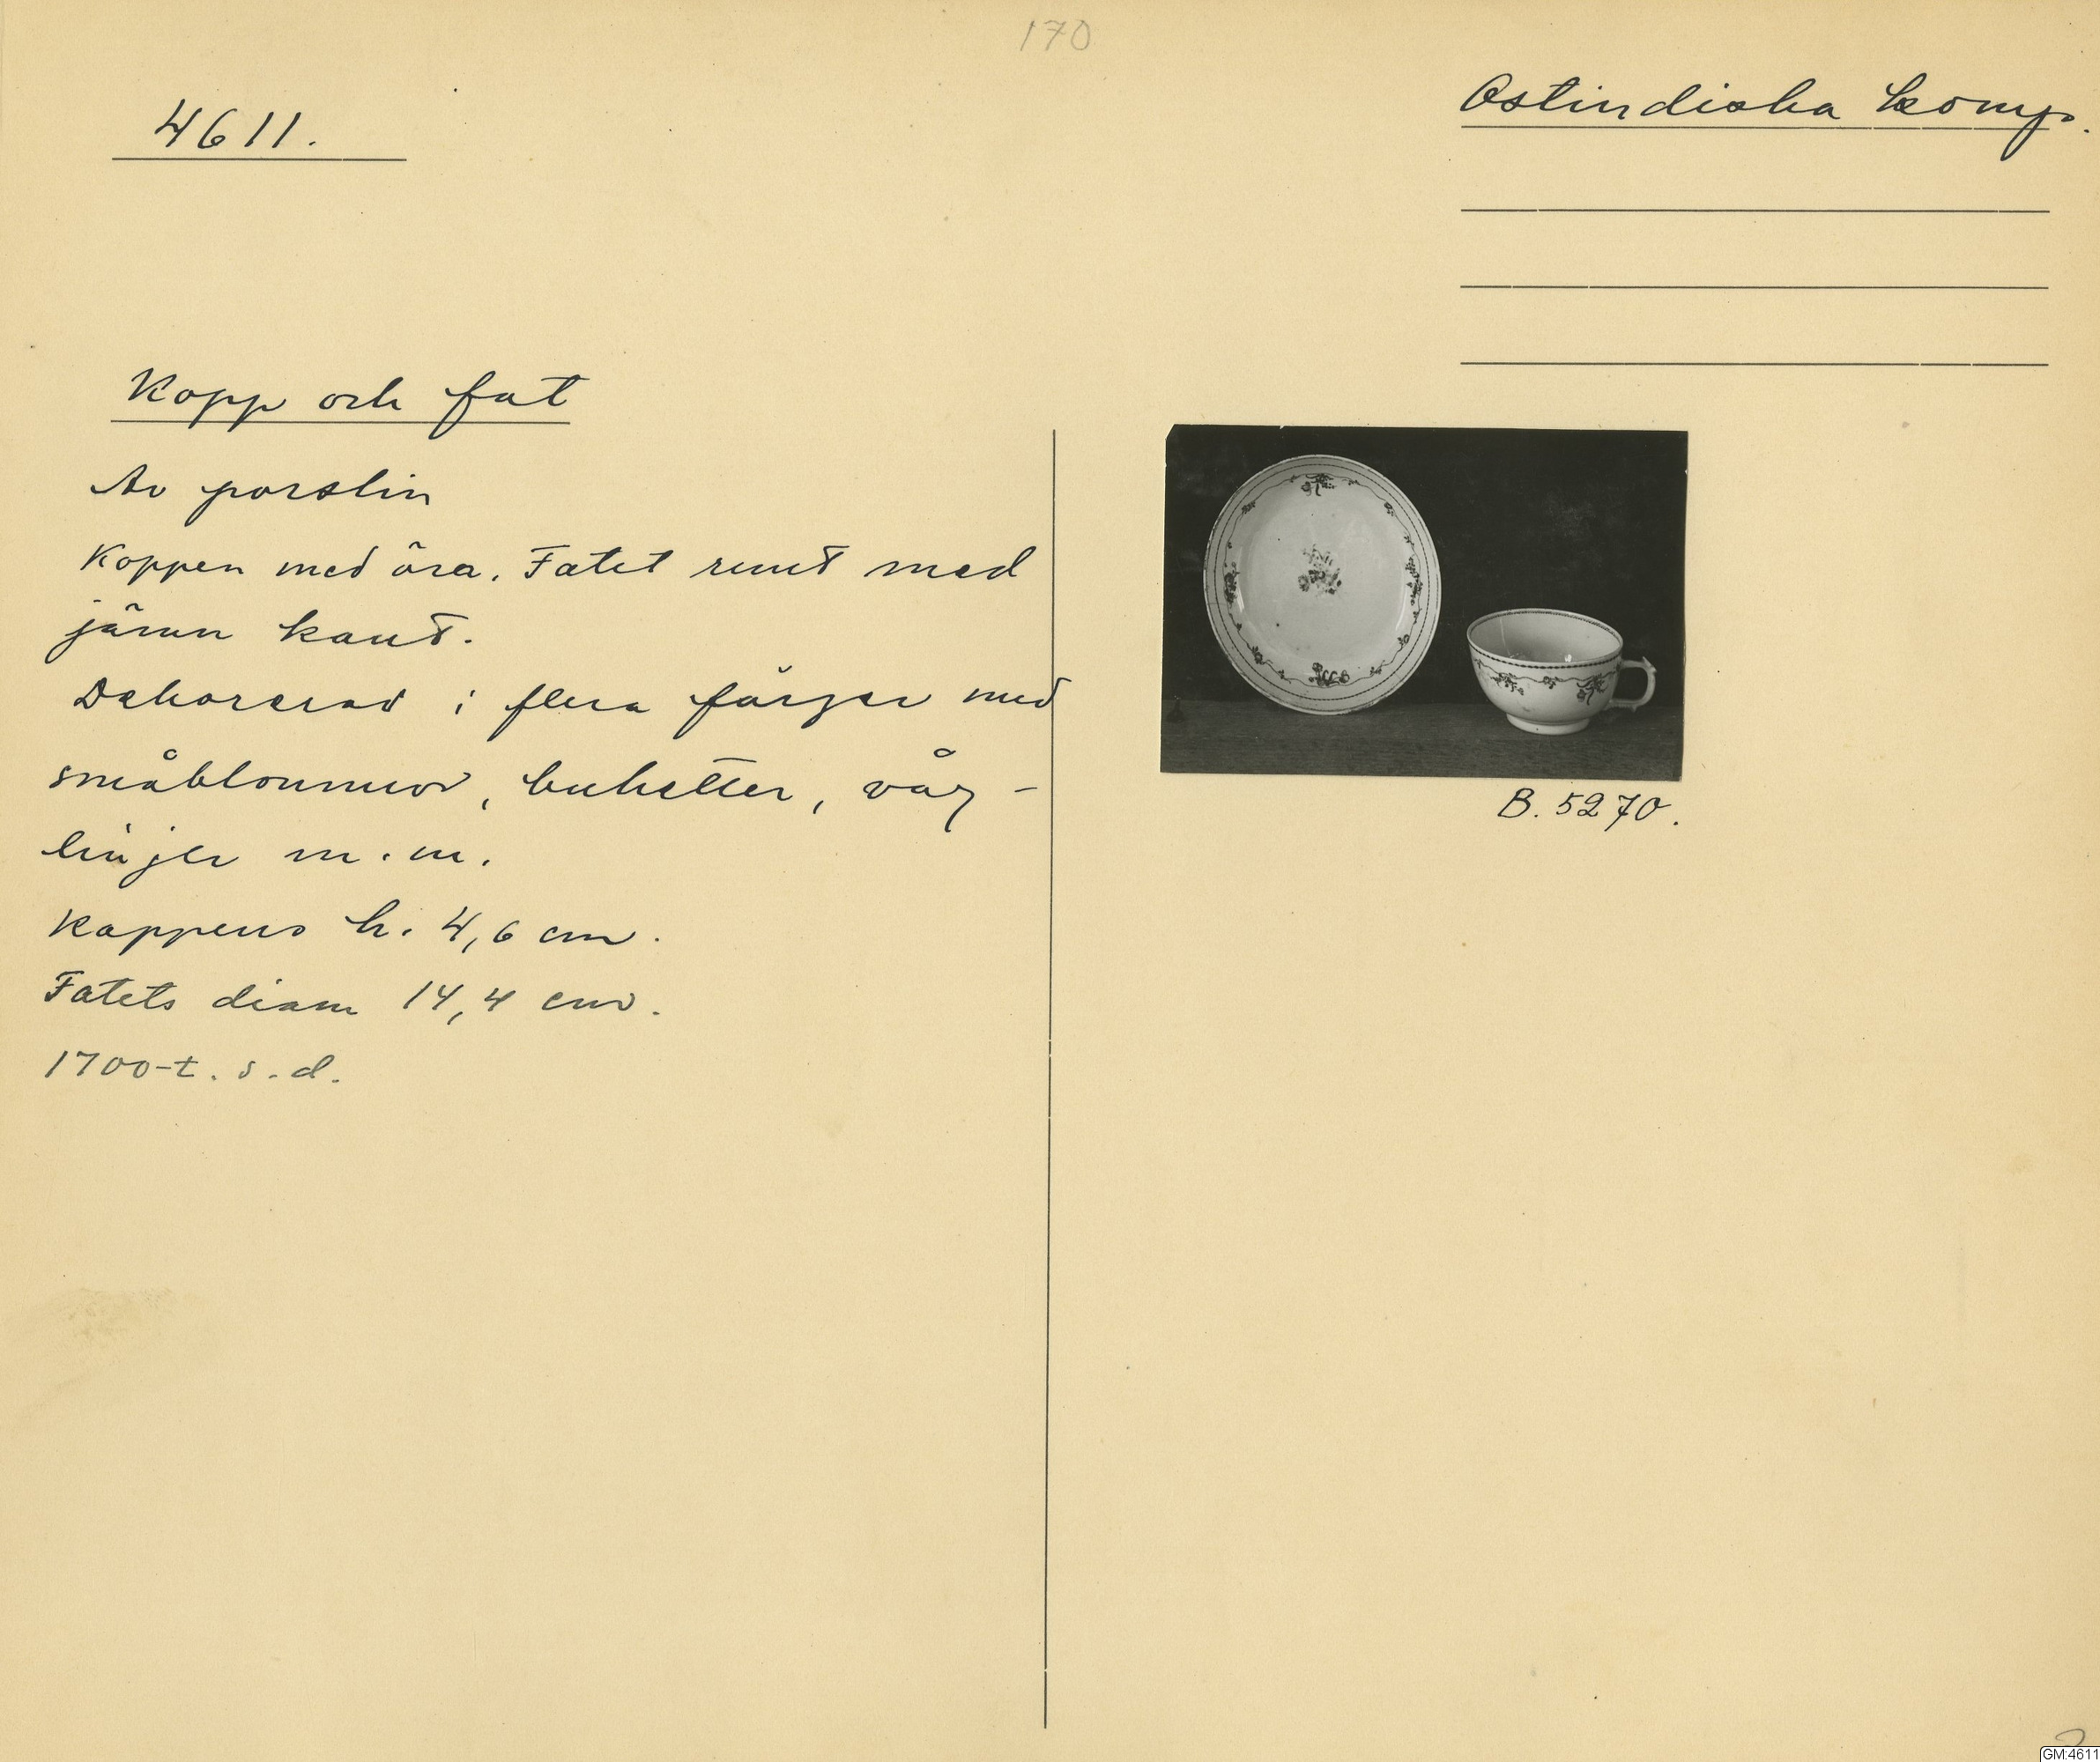 170
4611.
Ostindiska komp.
Kopp och fat
Av porslin
Koppen med öra. Fatet runt med
jämn kant.
Dekorerad i flera färger med
småblommor, buketter, våg-
linjer m.m.
Koppens h. 4,6 cm.
Fatets diam 14,4 cm.
1700-t. s.d.
B. 5270.
GM:4611